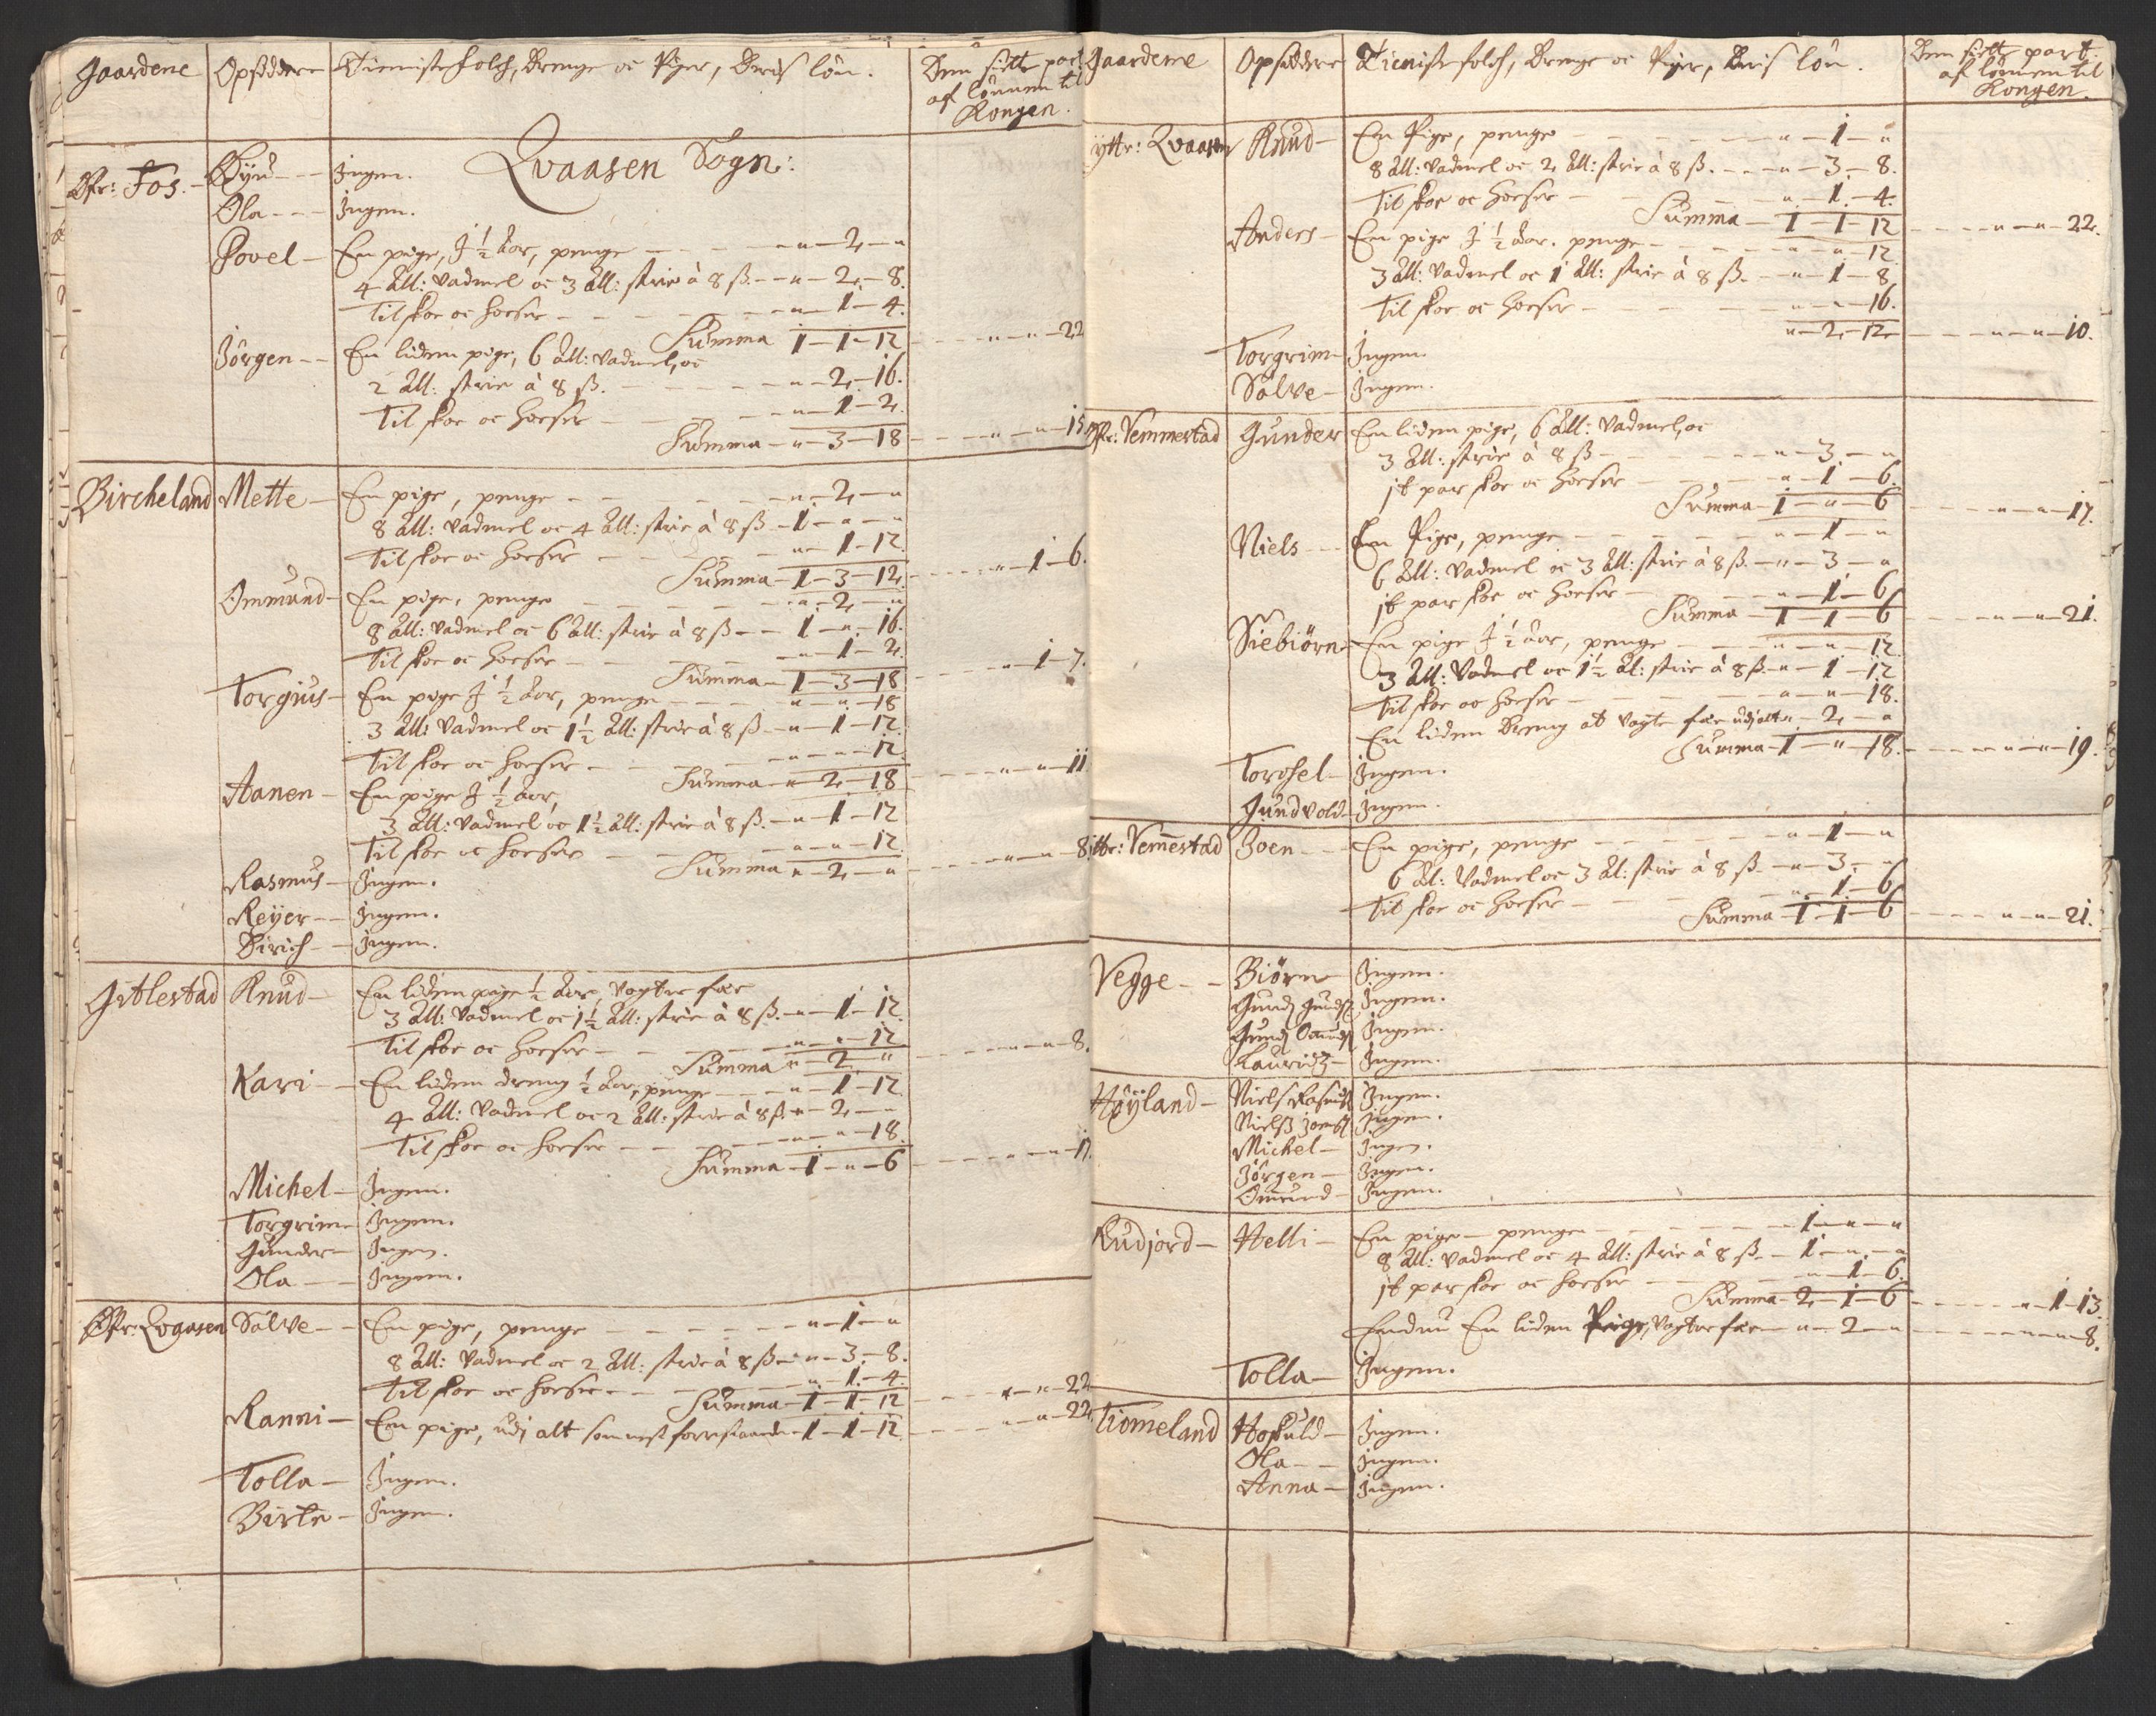 Gaardene Opsiddere Tienistefolch, Drenge oc Piger, Deris lön. Den siette part
af lönnen til
Kongen.
Qvaasen Sogn:
Øfr: Fos. Øÿud Ingen.
Ola Ingen.
Povel En pige, J ½ Aar, penge - " - 2 - "
4 All: Vadmel oc 3 All: strie à 8 ß. - " - 2 - 8.
Til skoe oc hoeser - " - 1 - 4.
Summa 1 - 1 - 12 - " - " - 22
Jörgen En liden pige, 6 All: Vadmel, oc
2 All: strie à 8 ß. - " - 2 - 16.
Til skoe oc hoeser - " - 1 - 2.
Summa - " - 3 - 18 - " - " - 15
Bircheland Mette En pige, penge - " - 2 - "
8 All: Vadmel oc 4 All: strie à 8 ß - 1 - " - "
Til skoe oc hoeser - " - 1 - 12.
Summa - 1 - 3 - 12 - " - 1 - 6.
Ommund En pige, penge - " - 2 - "
8 All: Vadmel oc 6 All: strie à 8 ß - 1 - " - 16.
Til skoe oc hoeser - " - 1 - 2.
Summa - 1 - 3 - 18 - " - 1 - 7.
Torgius En pige J ½ Aar, penge - " - " - 18
3 All: Vadmel oc 1½ All: strie à 8 ß - " - 1 - 12.
Til skoe oc hoeser - " - " - 12
Summa - " - 2 - 18 - " - " - 11
Aanen En pige J ½ Aar,
3 All: Vadmel oc 1½ All: strie à 8 ß. - " - 1 - 12
Til skoe oc hoeser - " - " - 12.
Summa " - 2 - " - " - " - 8.
Rasmus Ingen.
Reÿer Ingen.
Dirich Ingen.
Gitlestad Knud En liden pige ½ Aar, Vogter fæe
3 All: Vadmel oc 1½ All: strie à 8 ß. - " - 1 - 12.
Til skoe oc hoeser - " - " - 12
Summa " - 2 - " - " - " - 8.
Kari En liden dreng ½ Aar, penge - " - 1 - 12.
4 All: Vadmel oc 2 All: strie à 8 ß - " - 2 - "
Til skoe oc hoeser - " - " - 18.
Summa - 1 - " - 6 - " - " - 17.
Michel Ingen.
Torgrim Ingen.
Gunder Ingen.
Ola Ingen.
Øfr: Qvaasen Sälve En pige, penge - " - 1 - "
8 All: Vadmel oc 2 All: strie à 8 ß - " - 3 - 8.
Til skoe oc hoeser - " - 1 - 4.
Summa - 1 - 1 - 12 - " - " - 22
Ranni En pige, udj alt som nest forrestaaende - 1 - 1 - 12. - " - " - 22.
Tolla Ingen.
Birte Ingen.
Gaardene Opsiddere Tienistefolch, Drenge oc Piger, Deris lön. Den siette part
af lönnen til
Kongen.
ÿttr: Qvaasen Knud En Pige, penge - " - 1 - "
8 All: Vadmel oc 2 All: strie à 8 ß. - " - 3 - 8.
Til skoe oc hoeser - " - 1 - 4.
Summa - 1 - 1 - 12 - " - " - 22.
Anders En pige J ½ Aar. penge - " - " - 12.
3 All: Vadmel oc 1 All: strie à 8 ß. - " - 1 - 8
Til skoe oc hoeser - " - " - 16.
" - 2 - 12 - " - " - 10.
Torgrim Ingen.
Sälve Ingen.
Øfr: Vemmestad Gunder En liden pige, 6 All: Vadmel, oc
3 All: strie à 8 ß - " - 3 - "
jt par skoe oc hoeser - " - 1 - 6.
Summa - 1 - " - 6 - " - " - 17.
Niels En Pige, penge - " - 1 - "
6 All: Vadmel oc 3 All: strie à 8 ß. - " - 3 - "
jt par skoe oc hoeser - " - 1 - 6
Summa - 1 - 1 - 6 - " - " - 21.
Siebiörn En pige J ½ Aar, penge - " - " - 12.
3 All: Vadmel oc 1½ Al: strie à 8 ß - " - 1 - 12
Til skoe oc hoeser - " - " - 18.
En liden Dreng at Vogte fæe udj alt " - 2 - "
Summa - 1 - " - 18. - " - " - 19.
Torchel Ingen.
Gundvold Ingen.
ittr: Vem̄estad Joen En pige, penge - " - 1 - "
6 Al: Vadmel oc 3 Al: strie à 8 ß - " - 3 - "
Til skoe oc hoeser - " - 1 - 6
Summa - 1 - 1 - 6 - " - " - 21.
Vegge Biörn Ingen.
Gund Ingen.
Gund Ingen.
Lauridtz Ingen.
Höÿland Niels Rasmus Ingen.
Niels Jons Ingen.
Michel Ingen.
Jörgen Ingen.
Om̄und Ingen.
Rudjord Helli En pige penge - 1 - " - "
8 All: Vadmel oc 4 All: strie à 8 ß. - 1 - " - "
jt par skoe oc hoeser - " - 1 - 6.
Summa - 2 - 1 - 6 - " - 1 - 13.
Endnu En liden Peige, Vogter fæe - " - 2 - " - " - " - 8.
Tolla Ingen.
Tiomeland Hoskuld Ingen.
Ola Ingen.
Anna Ingen.